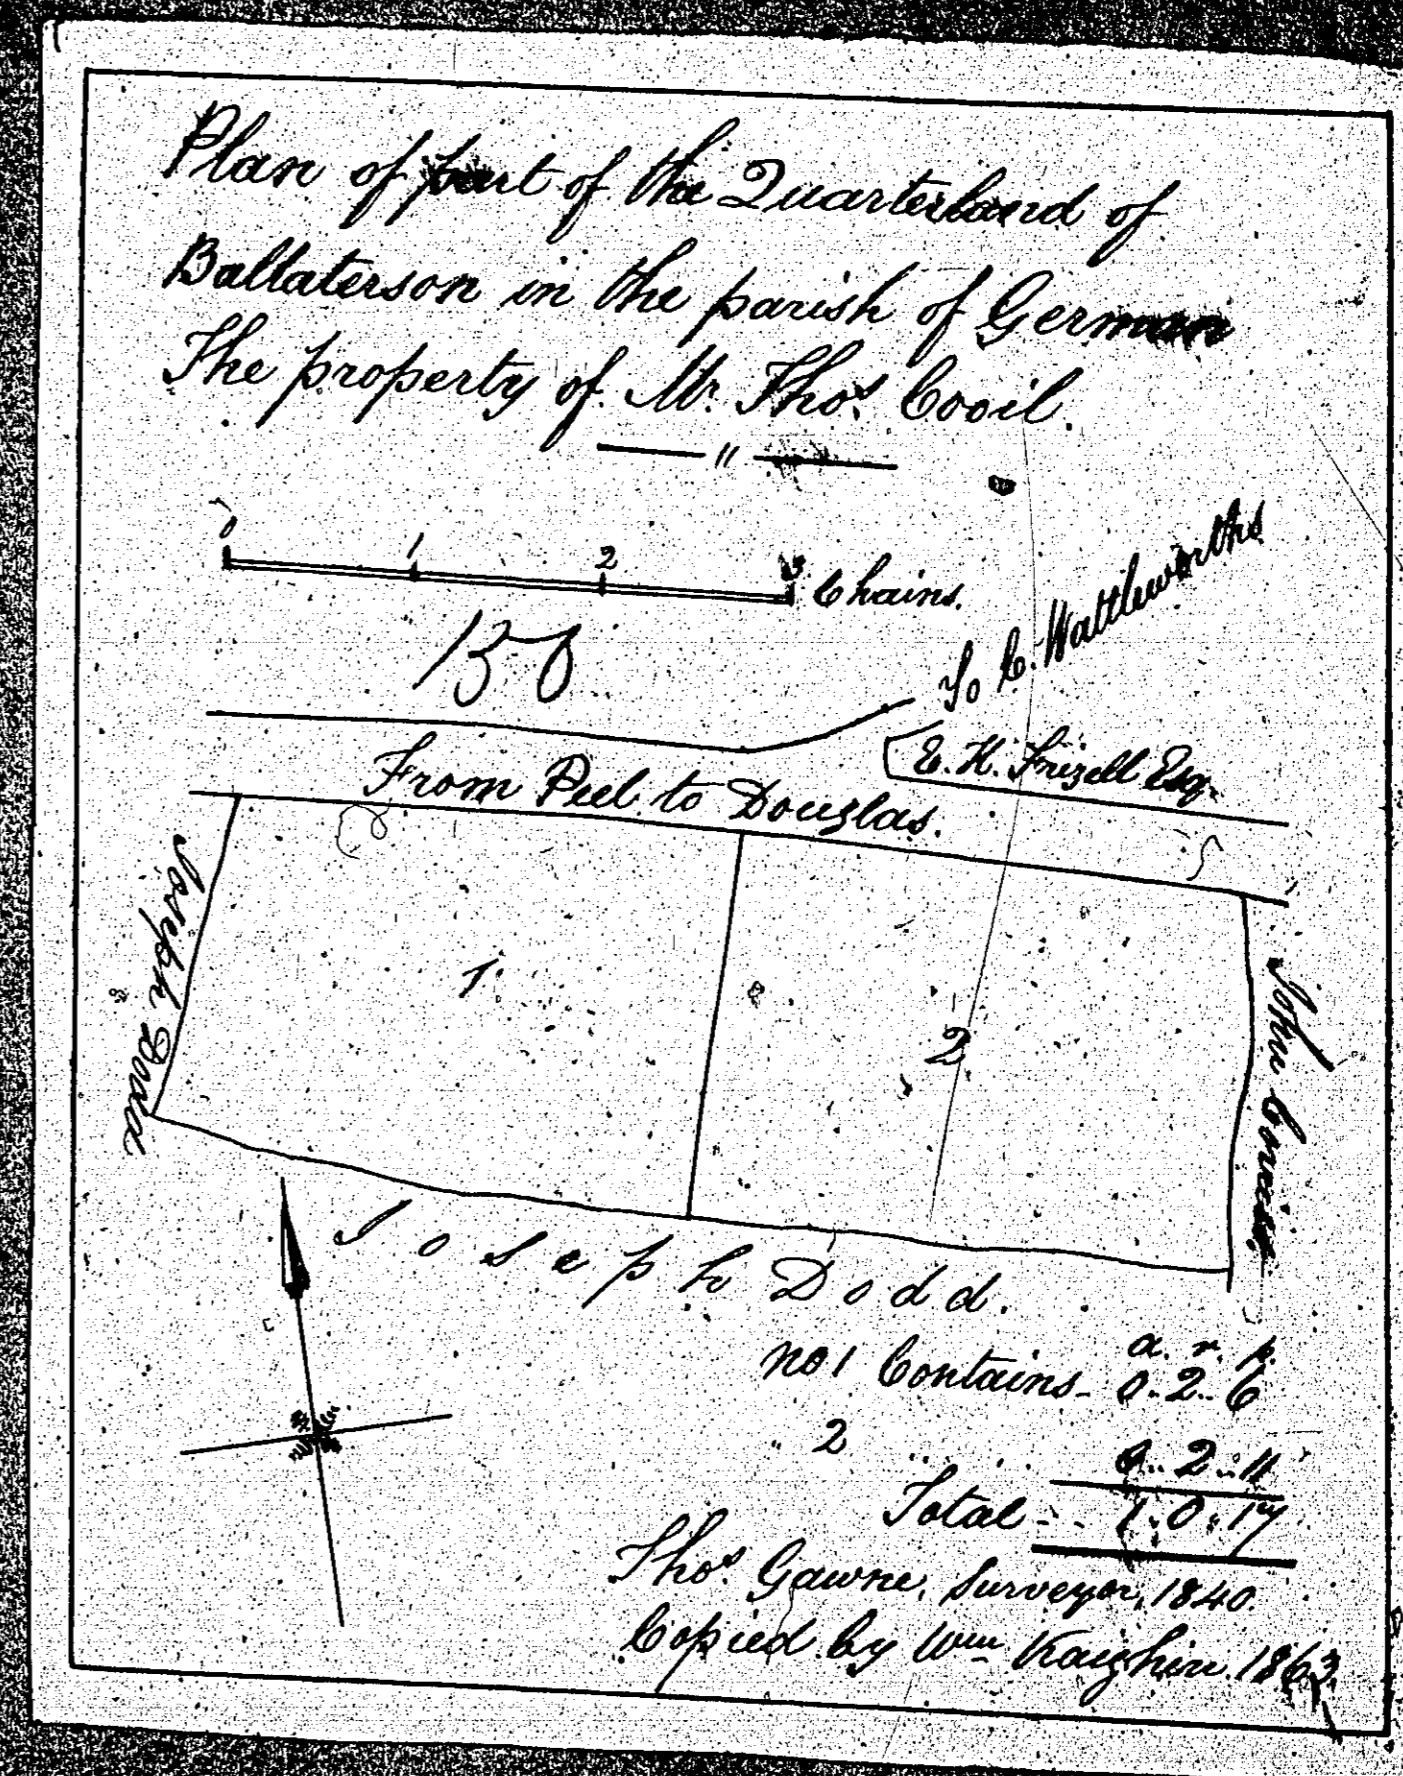 Plan of part of the Quarterland of
Ballaterson in the parish of German
The property of Mr. Thos. Cooil.
0 1 2 3 Chains.
To C. Wattleworths
E. H. Frizell Esq.
From Peel to Douglas.
Joseph Dodd
1
2
John
Joseph Dodd.
a. r. p.
No 1 Contains - 0 - 2 - 6
" 2 0 .. 2 .. 11
Total - - 1 . 0 . 17
Thos. Gawne, Surveyor, 1840.
Copied by Wm Kaighin 1863